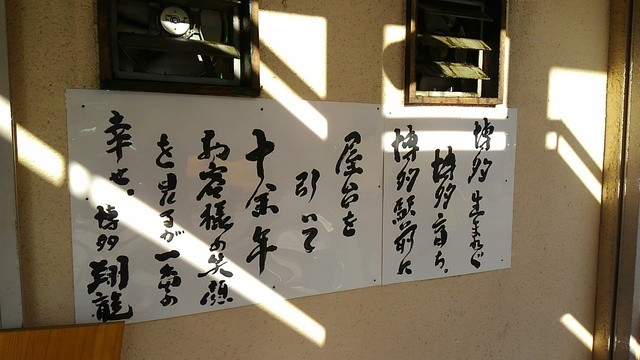 博多生まれで
博多育ち。
博多駅前に
屋台を
引いて
十余年
お客様の笑顔
を見るが一番の
幸せ。
博多翔龍